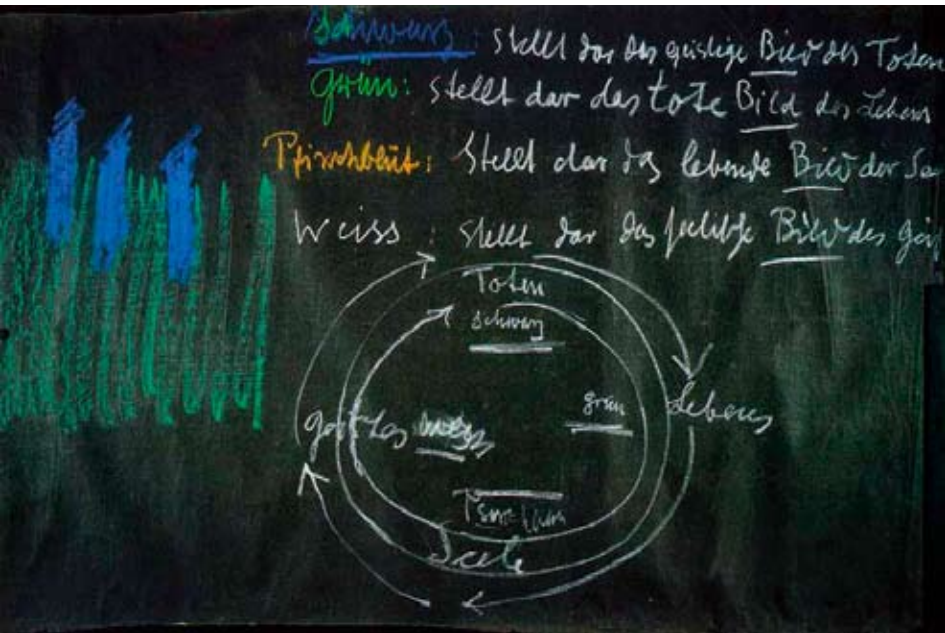 Schwarz: stellt dar das geistige Bild des Toten
Grün: stellt dar das tote Bild des Lebens
Pfirsichblüt: Stellt dar das lebende Bild der See
Weiss: stellt dar das seelische Bild des Gei
Toten
schwarz
Geistes weiss
grün
Lebens
Seele